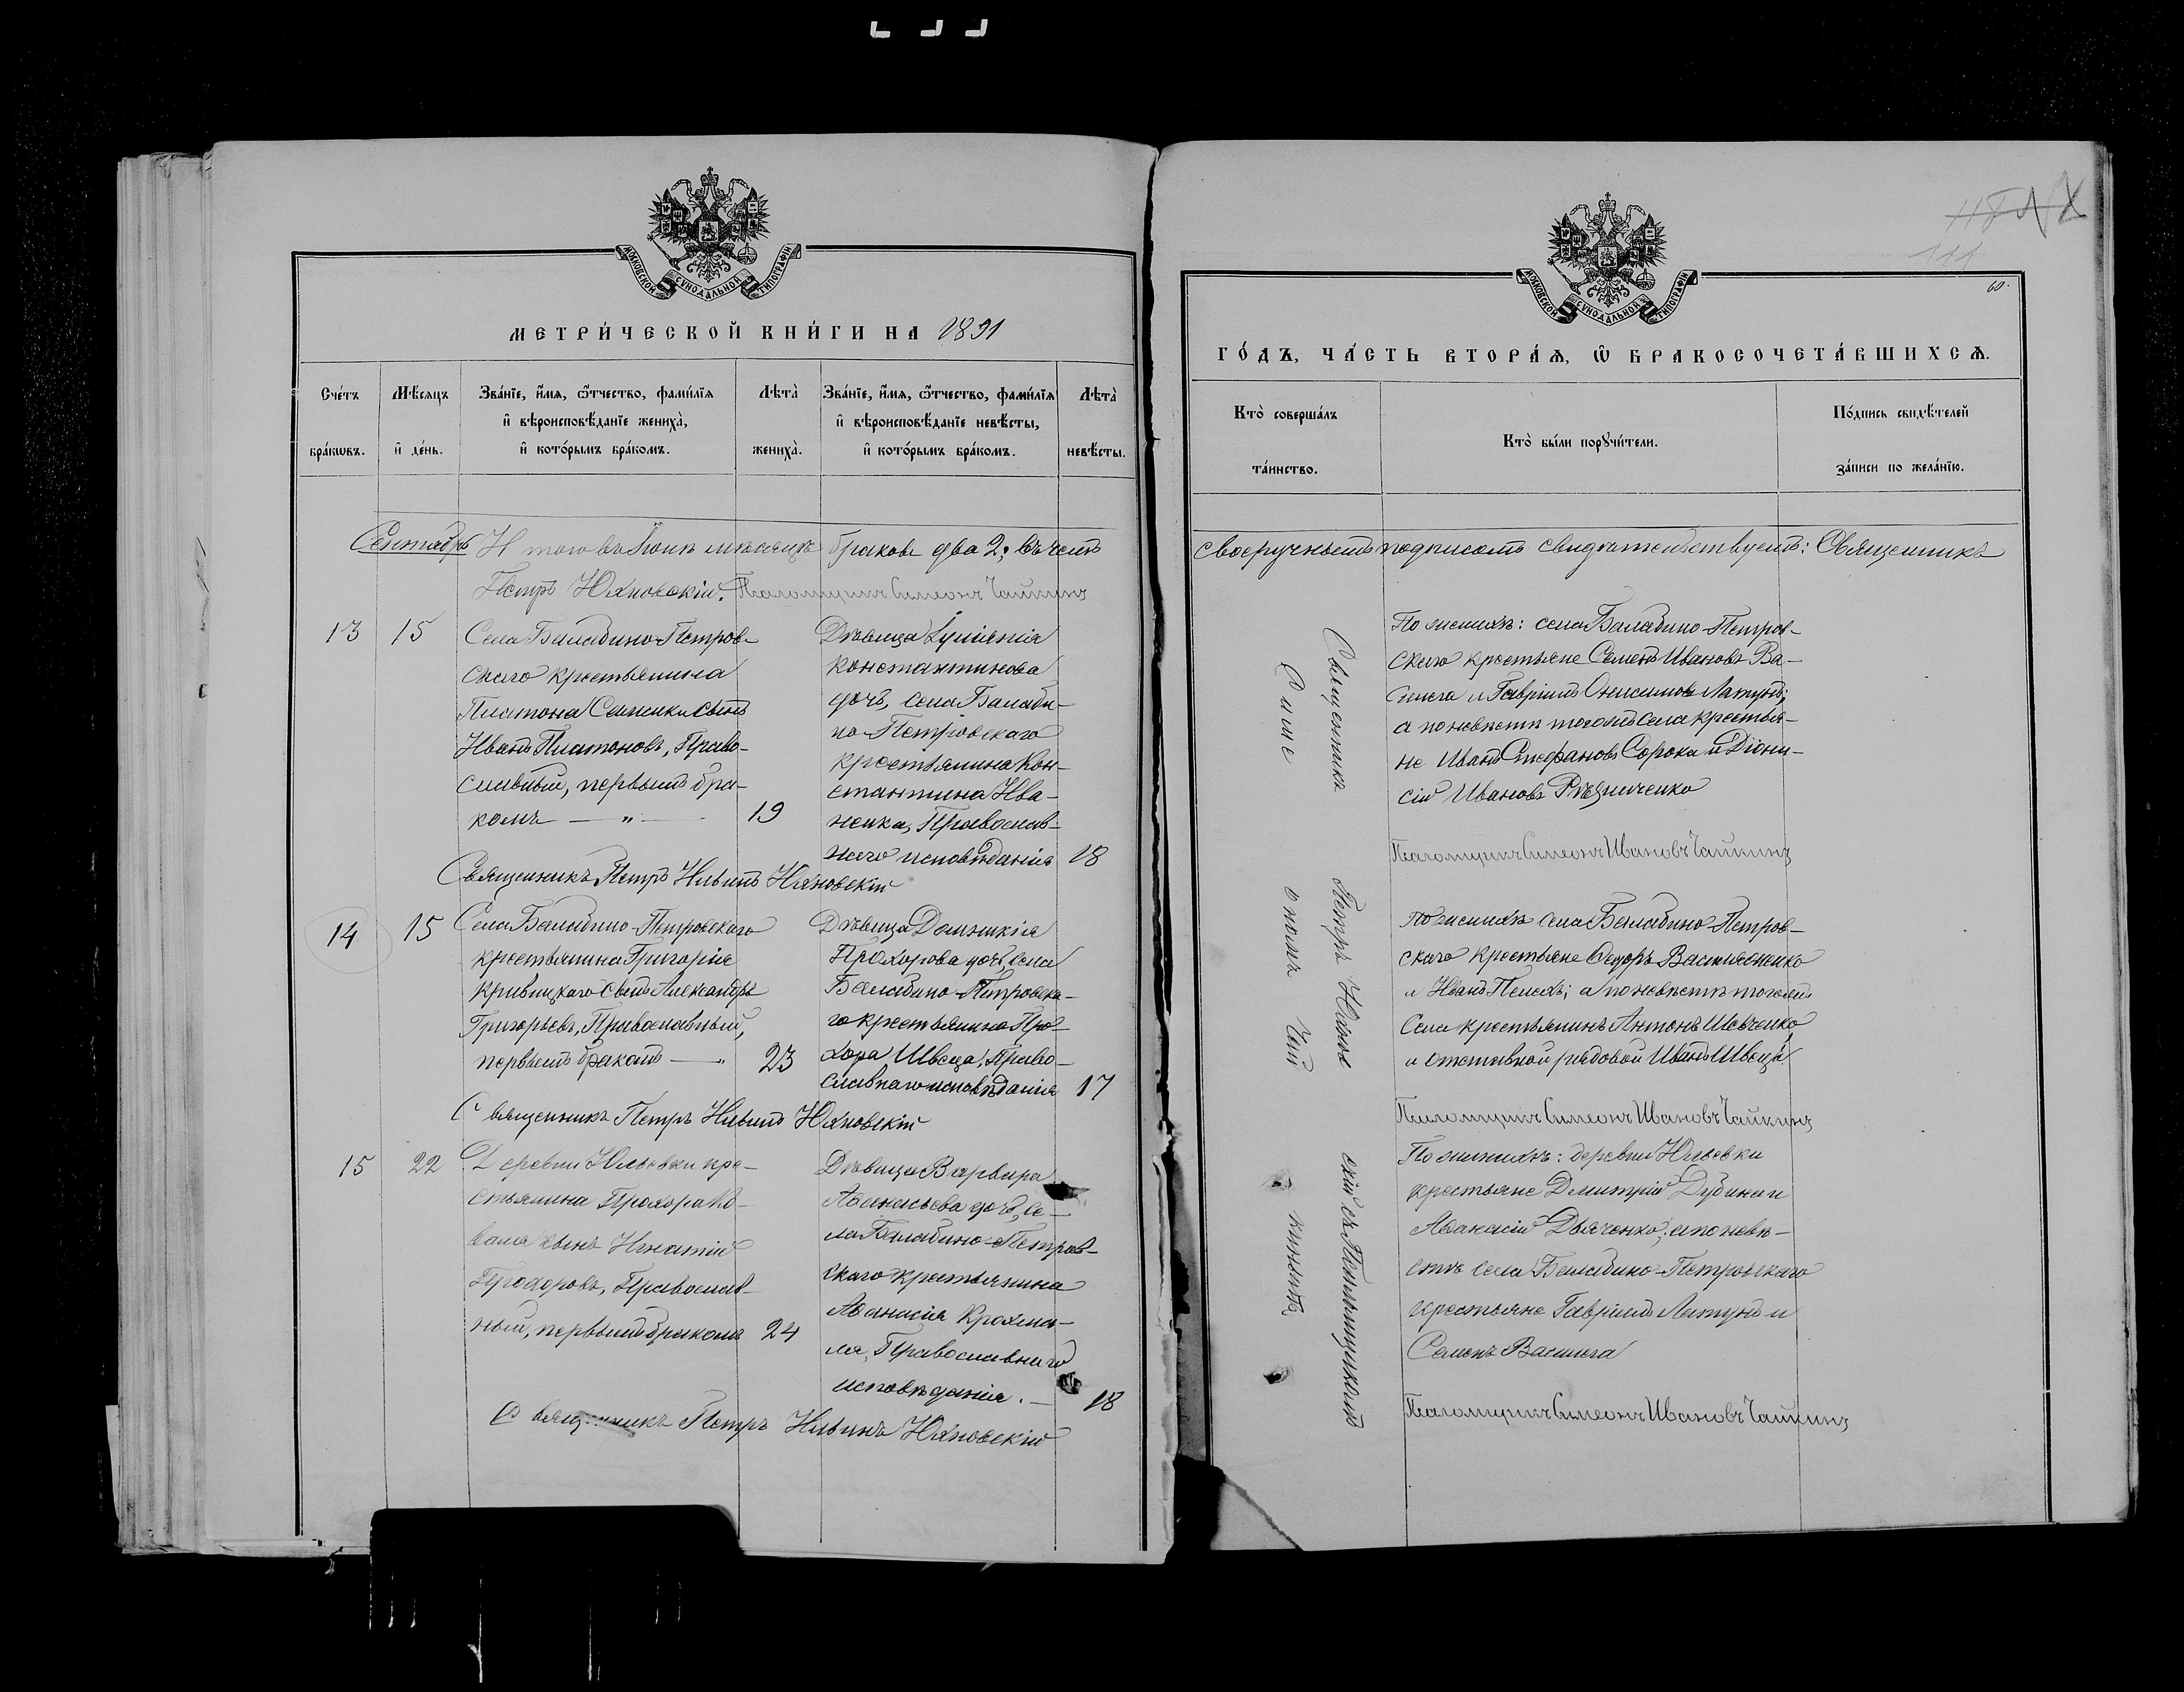 МОСКОВСКОЙ СѴНОДАЛЬНОЙ ТИПОГРАФІИ
МЕТРИ́ЧЕСКОЙ КНИ́ГИ НА 1891
Сче́тъ бра́кѡвъ.
Мѣ́сяцъ и҆ де́нь.
Зва́нїе, и҆́мѧ, ѻ҆́тчество, фами́лїѧ
и҆ вѣроисповѣ́данїе жениха̀,
и҆ кото́рымъ бра́комъ.
Лѣта̀ жениха̀.
Зва́нїе, и҆́мѧ, ѻ҆́тчество, фами́лїѧ
и҆ вѣроисповѣ́данїе невѣ́сты,
и҆ кото́рымъ бра́комъ.
Лѣта̀ невѣ́сты.
Сентябрь Итого въ Іюнѣ мѣсяцѣ браковъ два 2; въ чемъ
Петръ Юхновскій. Псаломщикъ Симеонъ Чайкинъ
13 15
Села Балабино-Петров-
скаго крестьянина
Платона Самика сынъ
Иванъ Платоновъ, Право-
славный, первымъ бра-
комъ — „ — 19
Дѣвица Куліанія
Константинова
дочь, села Балаби-
но-Петровскаго
крестьянина Кон-
стантина Ива-
ненка, Православ-
наго исповѣданія 18
Священникъ Петръ Ильинъ Юхновскій
14 15
Села Балабино-Петровскаго
крестьянина Григорія
Кривицкаго сынъ Александръ
Григорьевъ, Православный,
первымъ бракомъ — „ 23
Дѣвица Домникія
Прохорова дочь, села
Балабино-Петровска-
го крестьянина Про-
хора Швеца, Право-
славнаго исповѣданія 17
Священникъ Петръ Ильинъ Юхновскій
15 22
Деревни Юльевки кре-
стьянина Прохора Ко-
валя сынъ Игнатій
Прохоровъ, Православ-
ный, первымъ бракомъ 24
Дѣвица Варвара
Аѳанасьева дочь, се-
ла Балабино-Петров-
скаго крестьянина
Аѳанасія Крохма-
ля, Православнаго
исповѣданія. — 18
Священникъ Петръ Ильинъ Юхновскій
111
60.
МОСКОВСКОЙ СѴНОДАЛЬНОЙ ТИПОГРАФІИ
ГО́ДЪ, ЧА́СТЬ ВТОРА́Ѧ, Ѡ҆ БРАКОСОЧЕТА́ВШИХСѦ.
Кто̀ соверша́лъ та́инство.
Кто̀ бы́ли порꙋчи́тели.
По́дпись свидѣ́телей за́писи по жела́нїю.
своеручнымъ подписомъ свидѣтельствуемъ: Священникъ
Священникъ Петръ Юхновскій съ Псаломщикомъ
Симеономъ Чайкинымъ
По женихѣ: села Балабино-Петров-
скаго крестьяне Семенъ Ивановъ Ва-
сюга и Гавріилъ Онисимовъ Латунъ;
а по невѣстѣ того же села крестья-
не Иванъ Стефановъ Сорока и Діони-
сій Ивановъ Рѣзниченко
Псаломщикъ Симеонъ Ивановъ Чайкинъ
По женихѣ села Балабино-Петров-
скаго крестьяне Ѳедоръ Василяненко
и Иванъ Пелехъ; а по невѣстѣ того же
села крестьянинъ Антонъ Шевченко
и отставной рядовой Иванъ Швецъ
Псаломщикъ Симеонъ Ивановъ Чайкинъ
По женихѣ: деревни Юльевки
крестьяне Дмитрій Дубина и
Аѳанасій Дьяченко; а по невѣ-
стѣ села Балабино-Петровскаго
крестьяне Гавріилъ Латунъ и
Семенъ Васюга
Псаломщикъ Симеонъ Ивановъ Чайкинъ